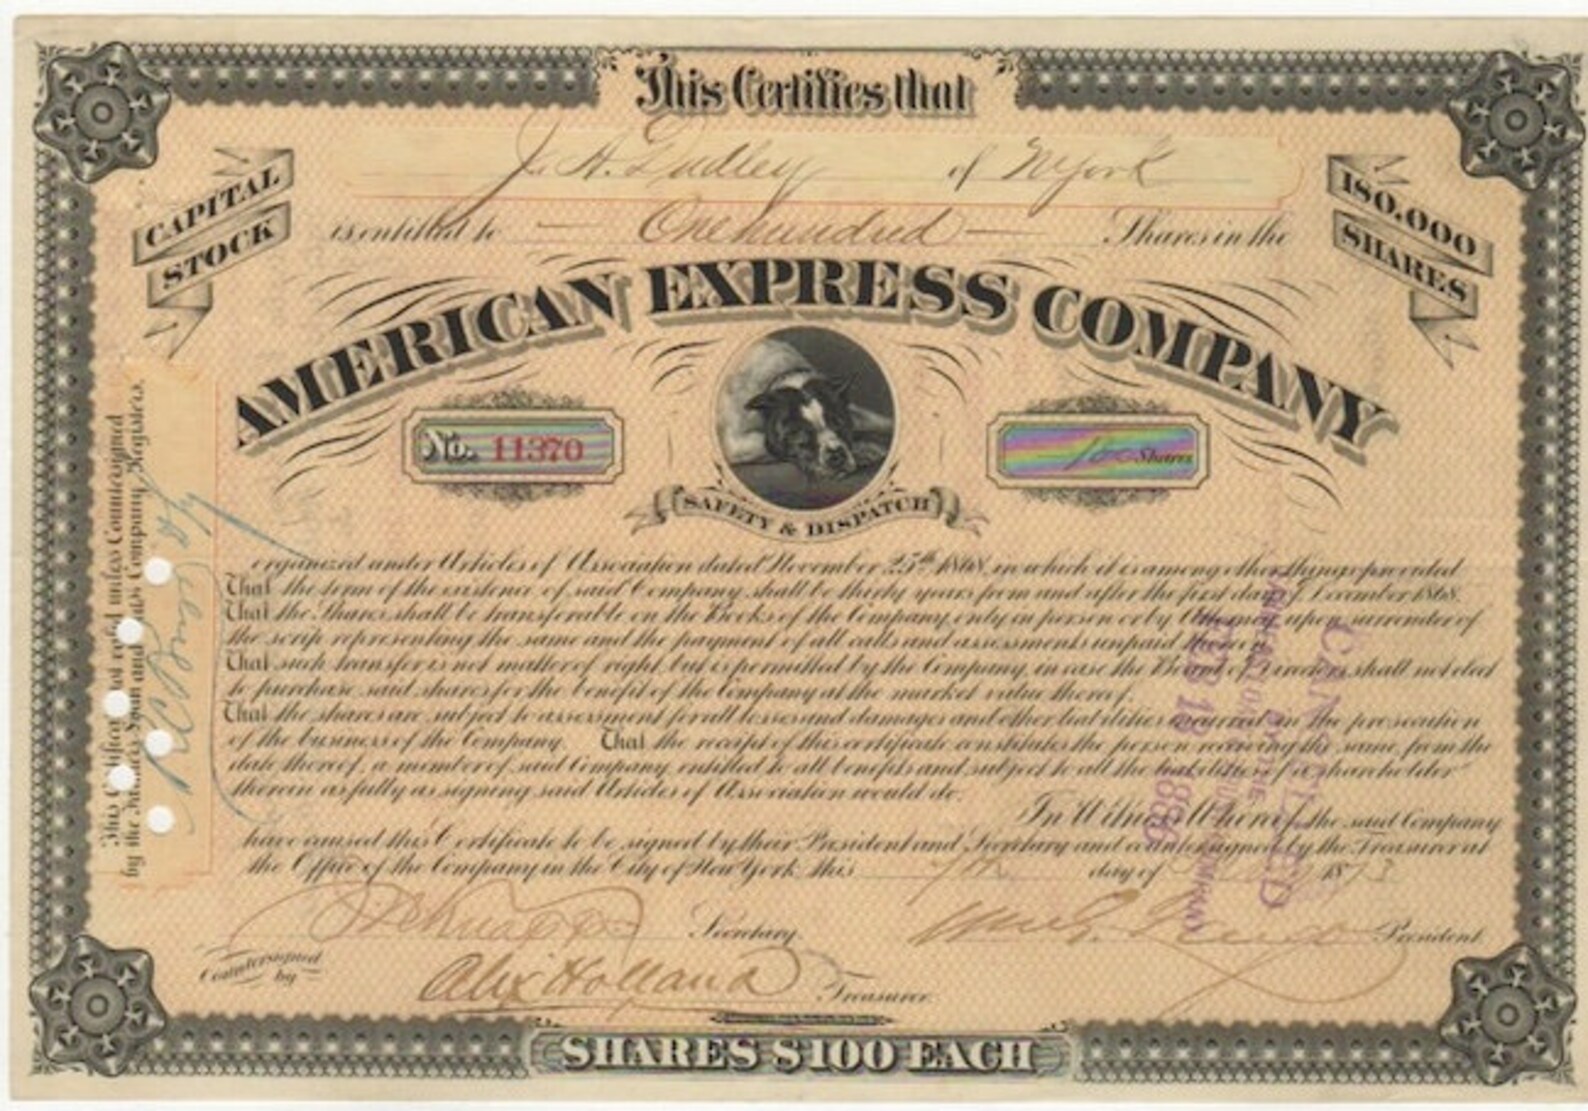 This Certifies that
J. A. Dudley of N York
is entitled to — One hundred — Shares in the
CAPITAL STOCK
180,000 SHARES
AMERICAN EXPRESS COMPANY
No. 11370
100 Shares
SAFETY & DISPATCH
organized under Articles of Association dated November 25th 1868, in which it is among other things provided
That the term of the existence of said Company shall be thirty years from and after the first day of December 1868.
That the Shares shall be transferable on the Books of the Company only in person or by Attorney upon surrender of
the scrip representing the same and the payment of all calls and assessments unpaid thereon.
That such transfer is not matter of right, but is permitted by the Company, in case the Board of Directors shall not elect
to purchase said shares for the benefit of the Company at the market value thereof.
That the shares are subject to assessment for all losses and damages and other liabilities incurred in the prosecution
of the business of the Company. That the receipt of this certificate constitutes the person receiving the same, from the
date thereof, a member of said Company entitled to all benefits and subject to all the liabilities of a shareholder
therein as fully as signing said Articles of Association would do.
In Witness Whereof, the said Company
have caused this Certificate to be signed by their President and Secretary and countersigned by the Treasurer at
the Office of the Company in the City of New York this 7th day of 1873
Secretary
President
Countersigned by
Alex Holland Treasurer.
SHARES $100 EACH
This Certificate not valid unless Countersigned
by the Farmers Loan and Trust Company, Registers.
CANCELLED
FEB 18 1886